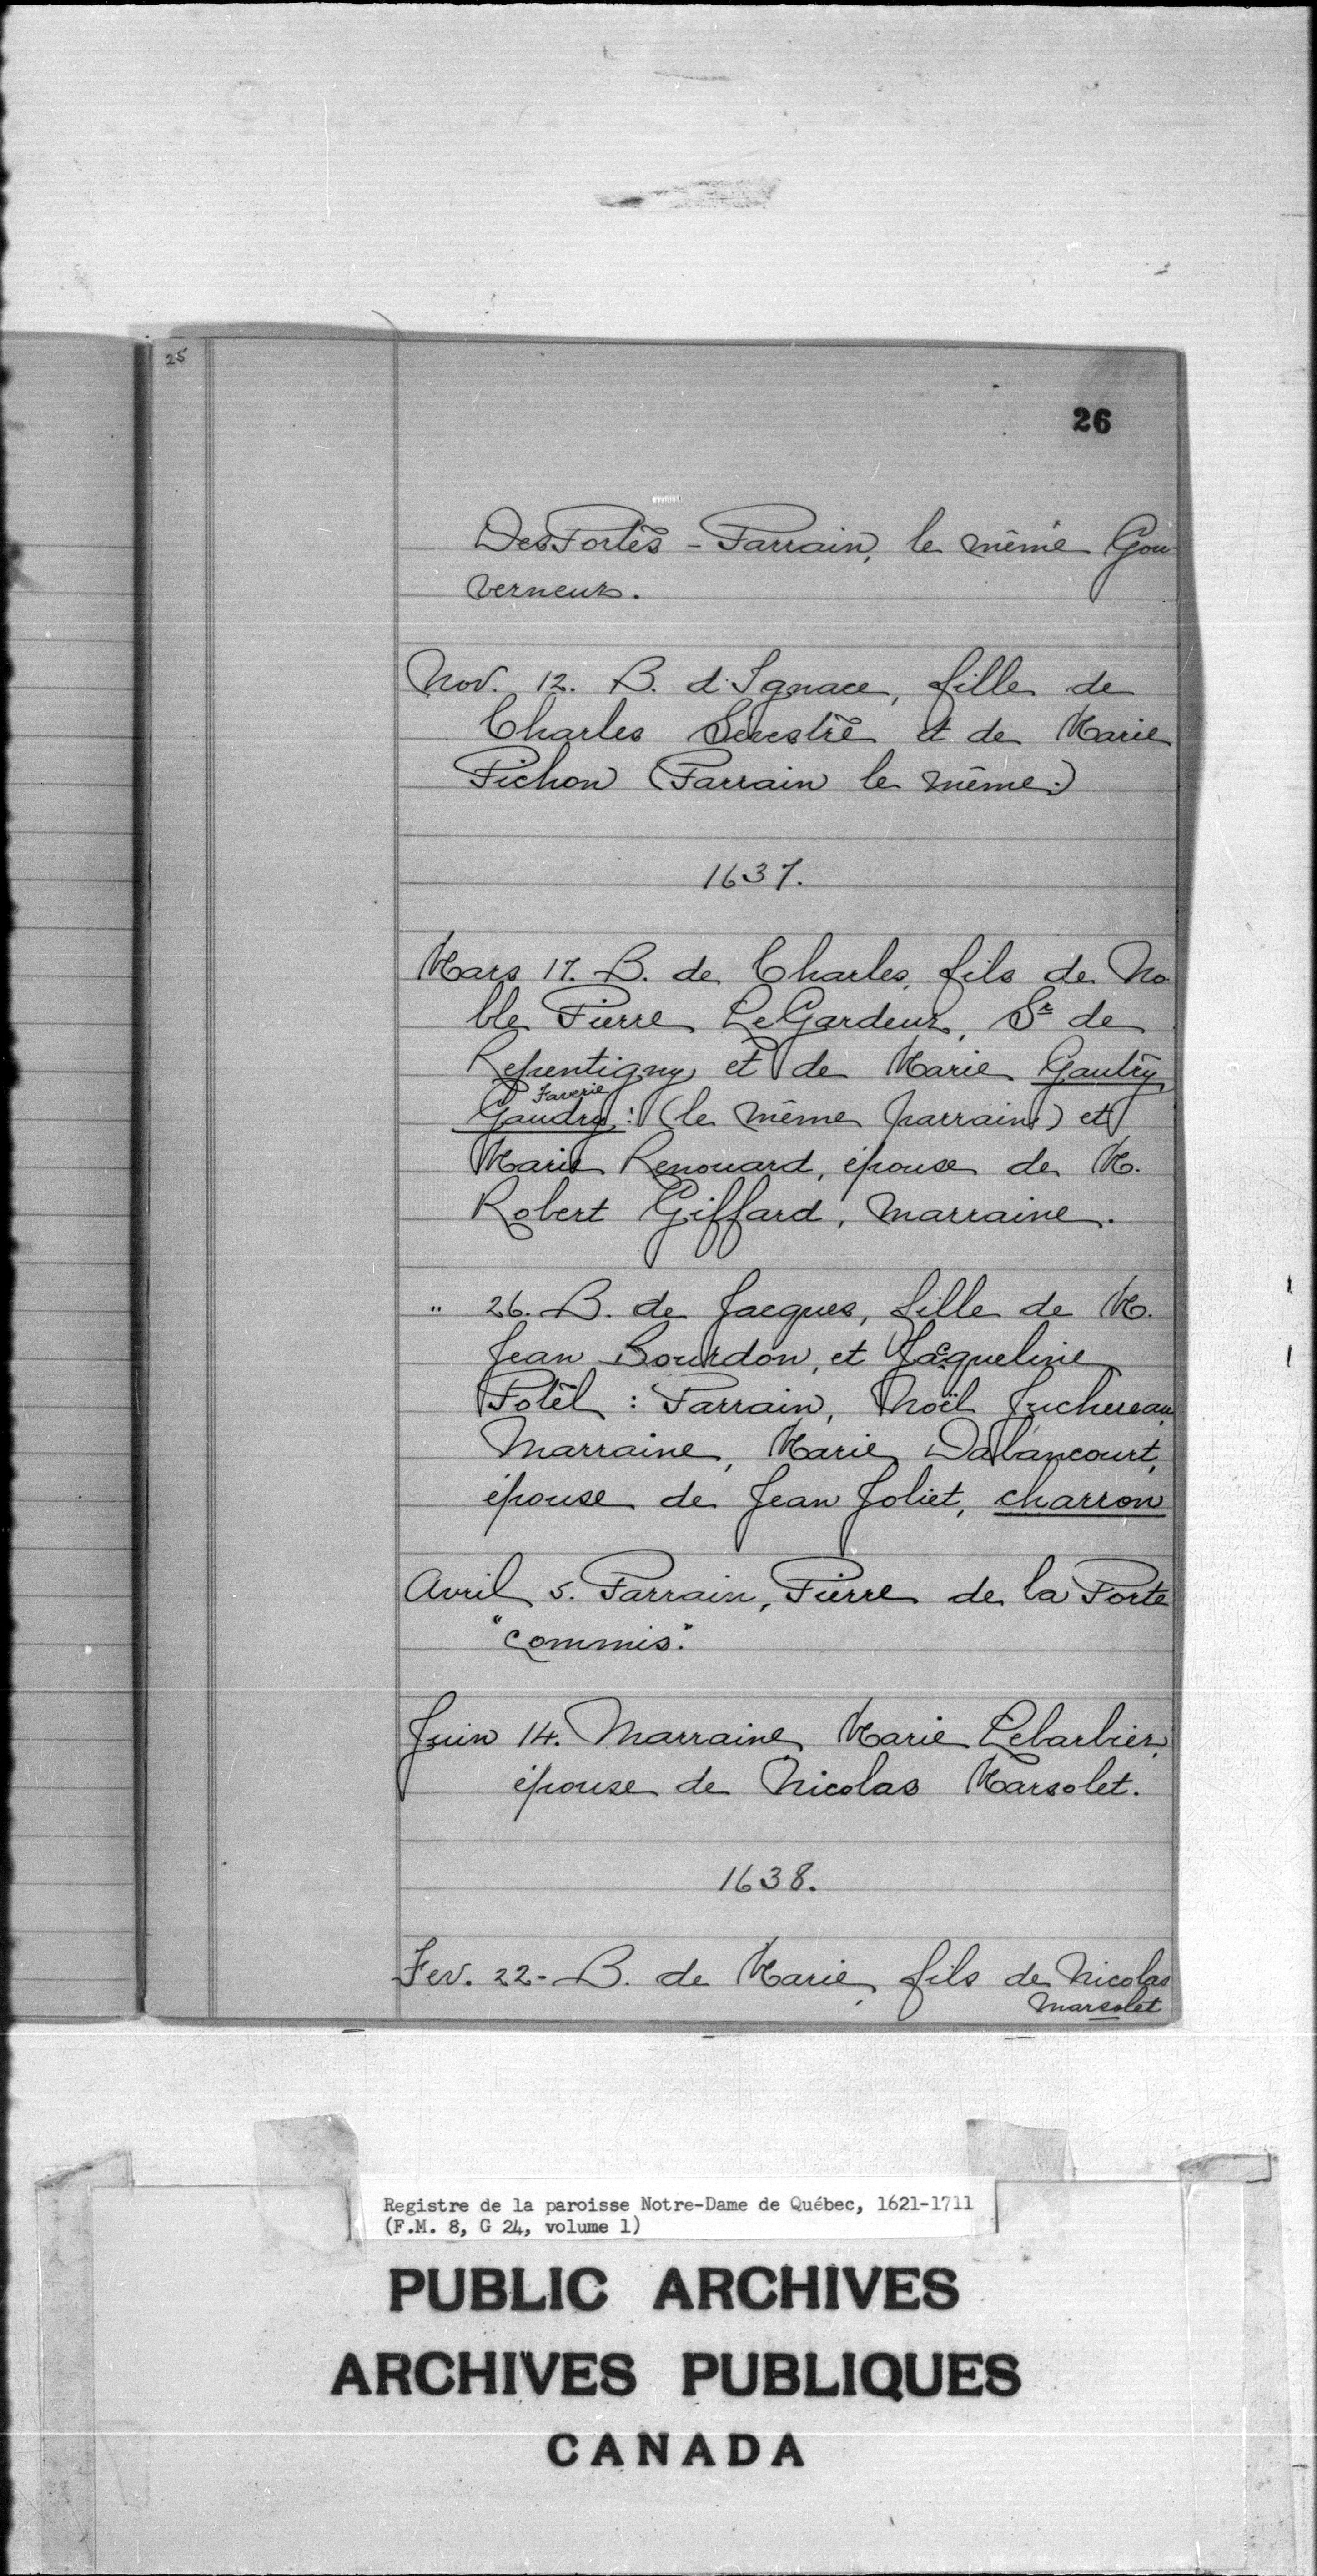 25
26
DesPortes - Parrain, le même Gou-
verneur.
Nov. 12. B. d'Ignace, fille de
Charles Sevestre et de Marie
Pichon (Parrain le même.)
1637.
Mars 17. B. de Charles, fils de No-
ble Pierre LeGardeur, Sr de
Repentigny et de Marie Gautry
Faverie
Gaudry : (le même parrain) et
Marie Renouard, épouse de M.
Robert Giffard, Marraine.
" 26. B. de Jacques, fille de M.
Jean Bourdon, et Jacqueline
Potel : Parrain, Noël Juchereau
Marraine, Marie Dabancourt,
épouse de Jean Joliet, charron
Avril 5. Parrain, Pierre de la Porte
"commis."
Juin 14. Marraine Marie Lebarbier,
épouse de Nicolas Marsolet.
1638.
Fev. 22 - B. de Marie, fils de Nicolas
Marsolet
Registre de la paroisse Notre-Dame de Québec, 1621-1711
(F.M. 8, G 24, volume 1)
PUBLIC ARCHIVES
ARCHIVES PUBLIQUES
CANADA